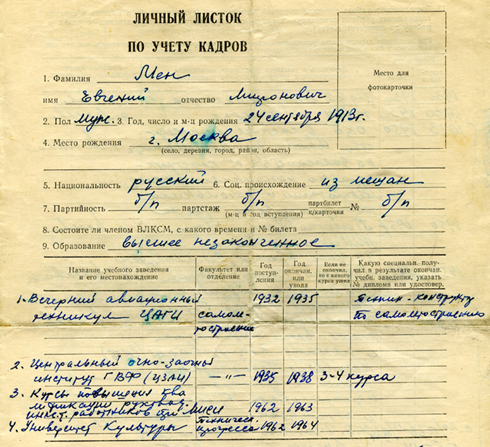 ЛИЧНЫЙ ЛИСТОК
ПО УЧЕТУ КАДРОВ
Место для
фотокарточки
1. Фамилия Мен
имя Евгений отчество Миронович
2. Пол Муж. 3. Год, число и м-ц рождения 24 сентября 1913 г.
4. Место рождения г. Москва
(село, деревня, город, район, область)
5. Национальность русский 6. Соц. происхождение из мещан
7. Партийность б/п партстаж б/п партбилет № б/п
(м-ц и год вступления) к/карточки
8. Состоите ли членом ВЛКСМ, с какого времени и № билета
9. Образование высшее незаконченное
Название учебного заведения и его местонахождение
Факультет или отделение
Год поступления
Год окончан. или ухода
Если не окончил, то с какого курса ушел
Какую специальн. получил в результате окончан. учебн. заведения, указать № диплома или удостовер.
1. Вечерний авиационный 1932 1935 техник-конструктор
техникум ЦАГИ самолетостроение по самолетостроению
2. Центральный очно-заочный
институт ГВФ (ЦЗАИ) —"— 1935 1938 3-4 курса
3. Курсы повышения ква
лификации
работников при 1962 1963
4. Университет Культуры прогресса 1962 1964